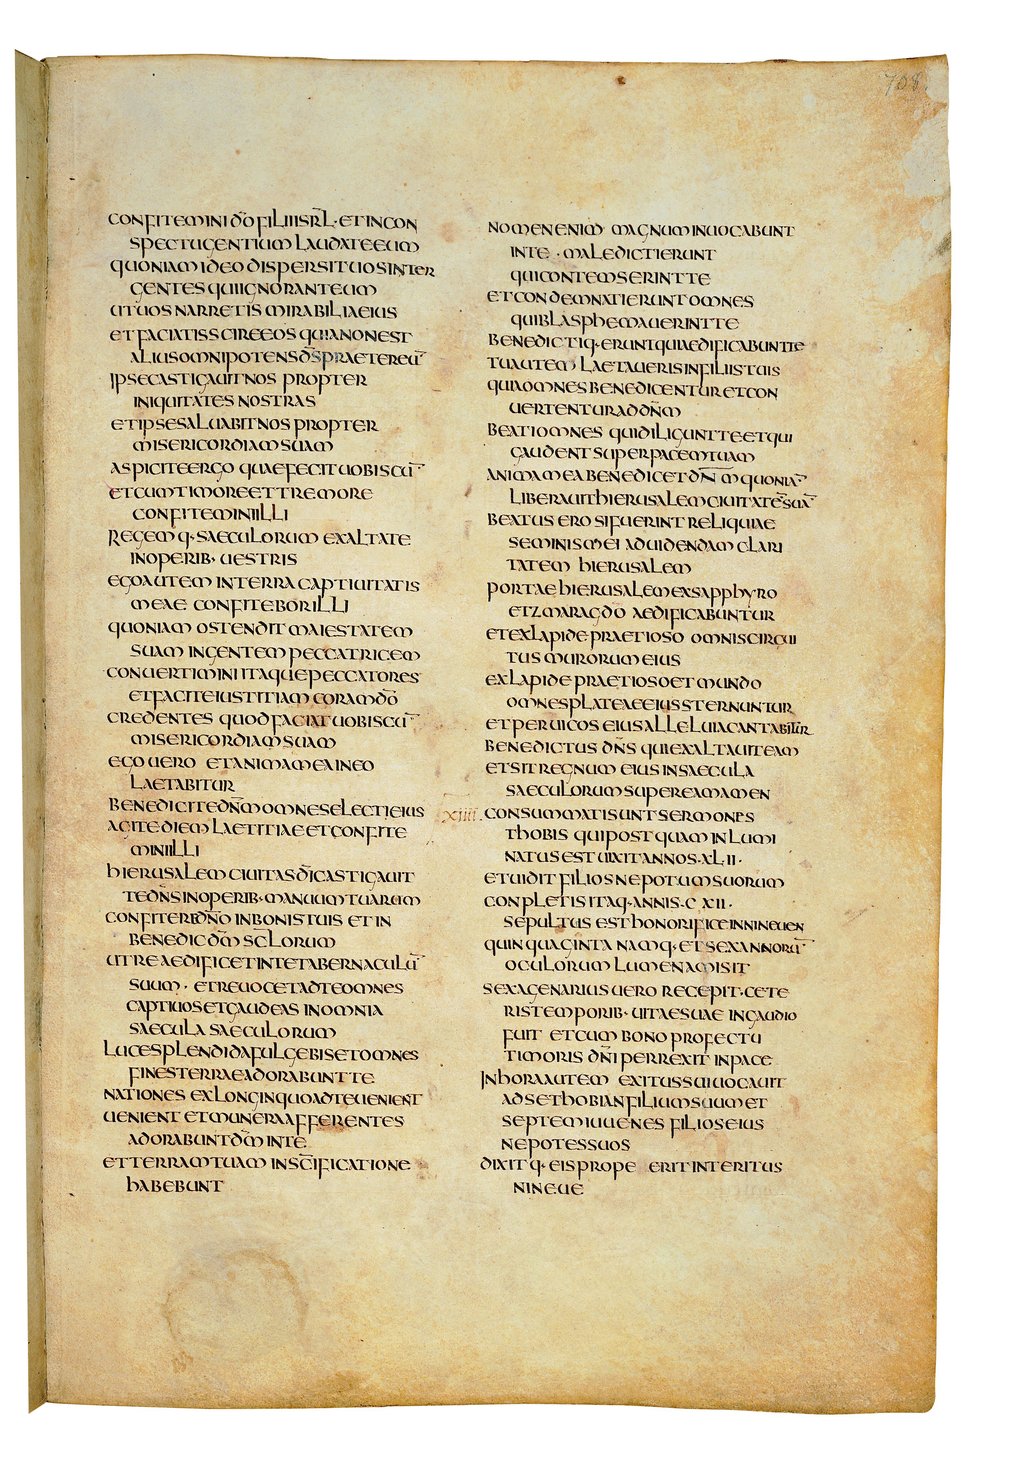 708
CONFITEMINI DÕO FILII ISRL̅· ET IN CON
SPECTU GENTIUM LAUDATE EUM
QUONIAM IDEO DISPERSIT UOS INTER
GENTES QUI IGNORANT EUM
UT UOS NARRETIS MIRABILIA EIUS
ET FACIATIS SCIRE EOS QUIA NON EST
ALIUS OMNIPOTENS D̅S PRAETER EU̅
IPSE CASTIGAUIT NOS PROPTER
INIQUITATES NOSTRAS
ET IPSE SALUABIT NOS PROPTER
MISERICORDIAM SUAM
ASPICITE ERGO QUAE FECIT UOBISCU̅
ET CUM TIMORE ET TREMORE
CONFITEMINI ILLI
REGEM Q· SAECULORUM EXALTATE
IN OPERIB· UESTRIS
EGO AUTEM IN TERRA CAPTIUITATIS
MEAE CONFITEBOR ILLI
QUONIAM OSTENDIT MAIESTATEM
SUAM IN GENTEM PECCATRICEM
CONUERTIMINI ITAQUE PECCATORES
ET FACITE IUSTITIAM CORAM D̅O
CREDENTES QUOD FACIAT UOBISCU̅
MISERICORDIAM SUAM
EGO UERO ET ANIMA MEA IN EO
LAETABITUR
BENEDICITE DN̅M OMNES ELECTI EIUS
AGITE DIEM LAETITIAE ET CONFITE
MINI ILLI
HIERUSALEM CIUITAS D̅I CASTIGAUIT
TE DN̅S IN OPERIB· MANUUM TUARUM
CONFITERE DN̅O IN BONIS TUIS ET IN
BENEDIC D̅M SC̅LORUM
UT REAEDIFICET IN TE TABERNACULU̅
SUUM · ET REUOCET AD TE OMNES
CAPTIUOS ET GAUDEAS IN OMNIA
SAECULA SAECULORUM
LUCE SPLENDIDA FULGEBIS ET OMNES
FINES TERRAE ADORABUNT TE
NATIONES EX LONGINQUO AD TE UENIENT
UENIENT ET MUNERA AFFERENTES
ADORABUNT D̅M IN TE
ET TERRAM TUAM IN SC̅IFICATIONE
HABEBUNT
NOMEN ENIM MAGNUM INUOCABUNT
IN TE · MALEDICTI ERUNT
QUI CONTEMSERINT TE
ET CONDEMNATI ERUNT OMNES
QUI BLASPHEMAUERINT TE
BENEDICTI Q· ERUNT QUI AEDIFICABUNT TE
TU AUTEM LAETAUERIS IN FILIIS TUIS
QUIA OMNES BENEDICENTUR ET CON
UERTENTUR AD DN̅M
BEATI OMNES QUI DILIGUNT TE ET QUI
GAUDENT SUPER PACEM TUAM
ANIMA MEA BENEDICET DN̅M QUONIA̅
LIBERAUIT HIERUSALEM CIUITATE̅ SUA̅
BEATUS ERO SI FUERINT RELIQUIAE
SEMINIS MEI AD UIDENDAM CLARI
TATEM HIERUSALEM
PORTAE HIERUSALEM EX SAPPHYRO
ET ZMARAGDO AEDIFICABUNTUR
ET EX LAPIDE PRAETIOSO OMNIS CIRCUI
TUS MURORUM EIUS
EX LAPIDE PRAETIOSO ET MUNDO
OMNES PLATEAE EIUS STERNUNTUR
ET PER UICOS EIUS ALLELUIA CANTABITUR
BENEDICTUS DN̅S QUI EXALTAUIT EAM
ET SIT REGNUM EIUS IN SAECULA
SAECULORUM SUPER EAM AMEN
XIIII. CONSUMMATI SUNT SERMONES
THOBIS QUI POSTQUAM INLUMI
NATUS EST UIXIT ANNOS· XLII·
ET UIDIT FILIOS NEPOTUM SUORUM
CONPLETIS ITAQ· ANNIS· C XII·
SEPULTUS EST HONORIFICE IN NINEUEN
QUINQUAGINTA NAMQ· ET SEX ANNORU̅
OCULORUM LUMEN AMISIT
SEXAGENARIUS UERO RECEPIT· CETE
RIS TEMPORIB· UITAE SUAE IN GAUDIO
FUIT ET CUM BONO PROFECTU
TIMORIS DN̅I PERREXIT IN PACE
IN HORA AUTEM EXITUS SUI UOCAUIT
AD SE THOBIAN FILIUM SUUM ET
SEPTEM IUUENES FILIOS EIUS
NEPOTES SUOS
DIXIT Q· EIS PROPE ERIT INTERITUS
NINEUE